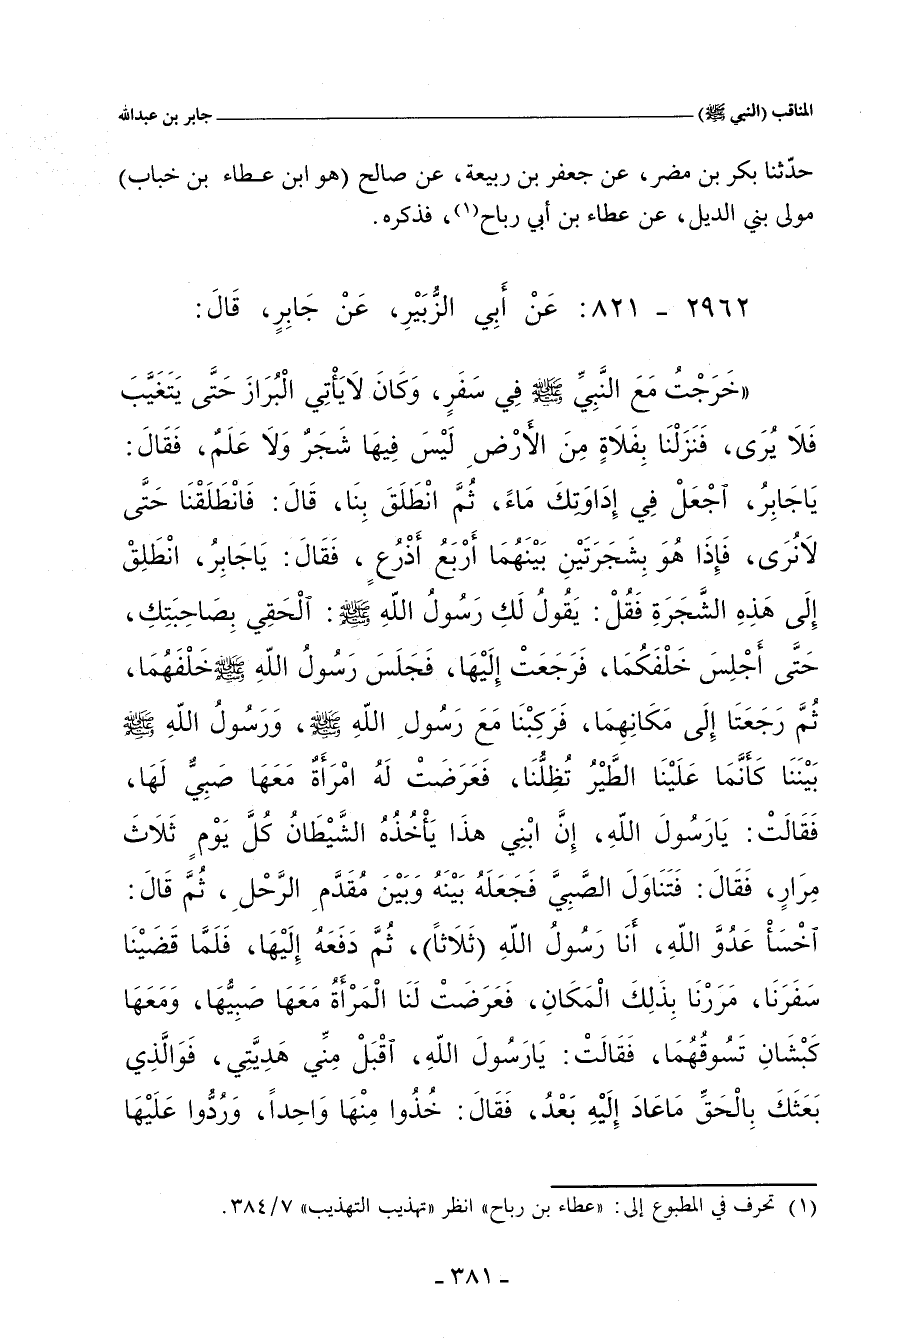 المناقب (النبي ﷺ) ــــــــــــــــــــ جابر بن عبدالله
حدّثنا بكر بن مضر، عن جعفر بن ربيعة، عن صالح (هو ابن عطاء بن خباب)
مولى بني الديل، عن عطاء بن أبي رباح(١)، فذكره.
٢٩٦٢ - ٨٢١: عَنْ أَبِي الزُّبَيْرِ، عَنْ جَابِرٍ، قَالَ:
«خَرَجْتُ مَعَ النَّبِيِّ ﷺ فِي سَفَرٍ، وَكَانَ لَايَأْتِي الْبُرَازَ حَتَّى يَتَغَيَّبَ
فَلَا يُرَى، فَنَزَلْنَا بِفَلَاةٍ مِنَ الأَرْضِ لَيْسَ فِيهَا شَجَرٌ وَلَا عَلَمٌ، فَقَالَ:
يَاجَابِرُ، آجْعَلْ فِي إِدَاوَتِكَ مَاءً، ثُمَّ انْطَلَقَ بِنَا، قَالَ: فَانْطَلَقْنَا حَتَّى
لَانُرَى، فَإِذَا هُوَ بِشَجَرَتَيْنِ بَيْنَهُمَا أَرْبَعُ أَذْرُعٍ، فَقَالَ: يَاجَابِرُ، انْطَلِقْ
إِلَى هَذِهِ الشَّجَرَةِ فَقُلْ: يَقُولُ لَكِ رَسُولُ اللّهِ ﷺ: آلْحَقِي بِصَاحِبَتِكِ،
حَتَّى أَجْلِسَ خَلْفَكُمَا، فَرَجَعَتْ إِلَيْهَا، فَجَلَسَ رَسُولُ اللّهِ ﷺ خَلْفَهُمَا،
ثُمَّ رَجَعَتَا إِلَى مَكَانِهِمَا، فَرَكِبْنَا مَعَ رَسُولِ اللّهِ ﷺ، وَرَسُولُ اللّهِ ﷺ
بَيْنَنَا كَأَنَّمَا عَلَيْنَا الطَّيْرُ تُظِلُّنَا، فَعَرَضَتْ لَهُ امْرَأَةٌ مَعَهَا صَبِيٌّ لَهَا،
فَقَالَتْ: يَارَسُولَ اللّهِ، إِنَّ ابْنِي هذَا يَأْخُذُهُ الشَّيْطَانُ كُلَّ يَوْمٍ ثَلَاثَ
مِرَارٍ، فَقَالَ: فَتَنَاوَلَ الصَّبِيَّ فَجَعَلَهُ بَيْنَهُ وَبَيْنَ مُقَدَّمِ الرَّحْلِ، ثُمَّ قَالَ:
آخْسَأْ عَدُوَّ اللّهِ، أَنَا رَسُولُ اللّهِ (ثَلَاثاً)، ثُمَّ دَفَعَهُ إِلَيْهَا، فَلَمَّا قَضَيْنَا
سَفَرَنَا، مَرَرْنَا بِذَلِكَ الْمَكَانِ، فَعَرَضَتْ لَنَا الْمَرْأَةُ مَعَهَا صَبِيُّهَا، وَمَعَهَا
كَبْشَانِ تَسُوقُهُمَا، فَقَالَتْ: يَارَسُولَ اللّهِ، آقْبَلْ مِنِّي هَدِيَّتِي، فَوَالَّذِي
بَعَثَكَ بِالْحَقِّ مَاعَادَ إِلَيْهِ بَعْدُ، فَقَالَ: خُذُوا مِنْهَا وَاحِداً، وَرُدُّوا عَلَيْهَا
(١) تحرف في المطبوع إلى: «عطاء بن رباح» انظر «تهذيب التهذيب» ٣٨٤/٧.
- ٣٨١ -